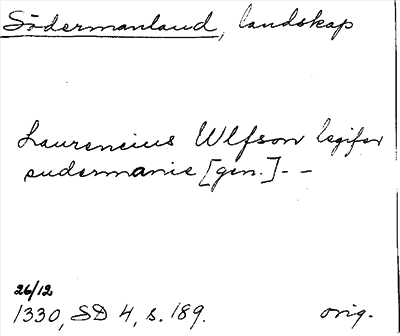 Södermanland, landskap
Laurencius Wlfson legifer
sudermanie [gen.] - -
26/12
1330, SD 4, s. 189. orig.